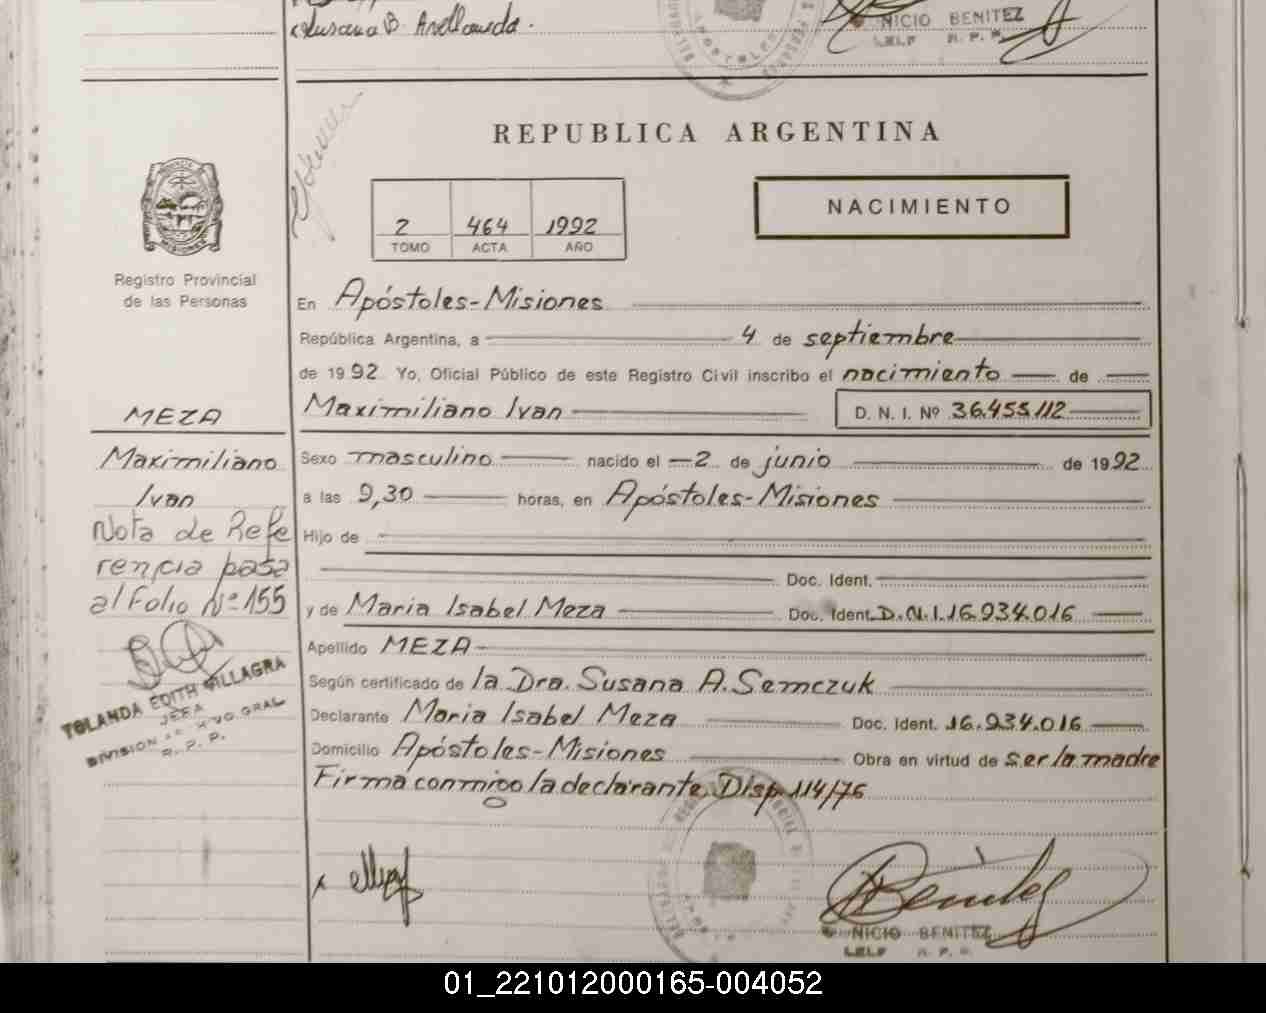 Susana B Avellaneda.
NICIO BENITEZ
REPUBLICA ARGENTINA
NACIMIENTO
2 464 1992
TOMO ACTA AÑO
MISIONES
Registro Provincial
de las Personas
En Apóstoles-Misiones
República Argentina, a 4 de septiembre
de 1992 Yo, Oficial Público de este Registro Civil inscribo el nacimiento de
Maximiliano Ivan D. N. I. Nº 36.455.112
MEZA
Maximiliano
Ivan
Sexo masculino nacido el -2 de junio de 1992
a las 9,30 horas, en Apóstoles-Misiones
Nota de Refe
rencia pasa
al Folio Nº 155
Hijo de
Doc. Ident.
y de Maria Isabel Meza Doc. Ident. D.N.I.16.934.016
Apellido MEZA
Según certificado de la Dra. Susana A. Semczuk
Declarante Maria Isabel Meza Doc. Ident. 16.934.016
Domicilio Apóstoles-Misiones Obra en virtud de ser la madre
Firma conmigo la declarante. Disp. 114/75
YOLANDA EDITH VILLAGRA
JEFA
DIVISION GRAL
R. P. P.
x
NICIO BENITEZ
01_221012000165-004052